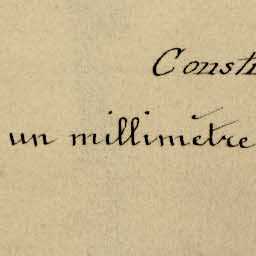 Consti
un millimètre